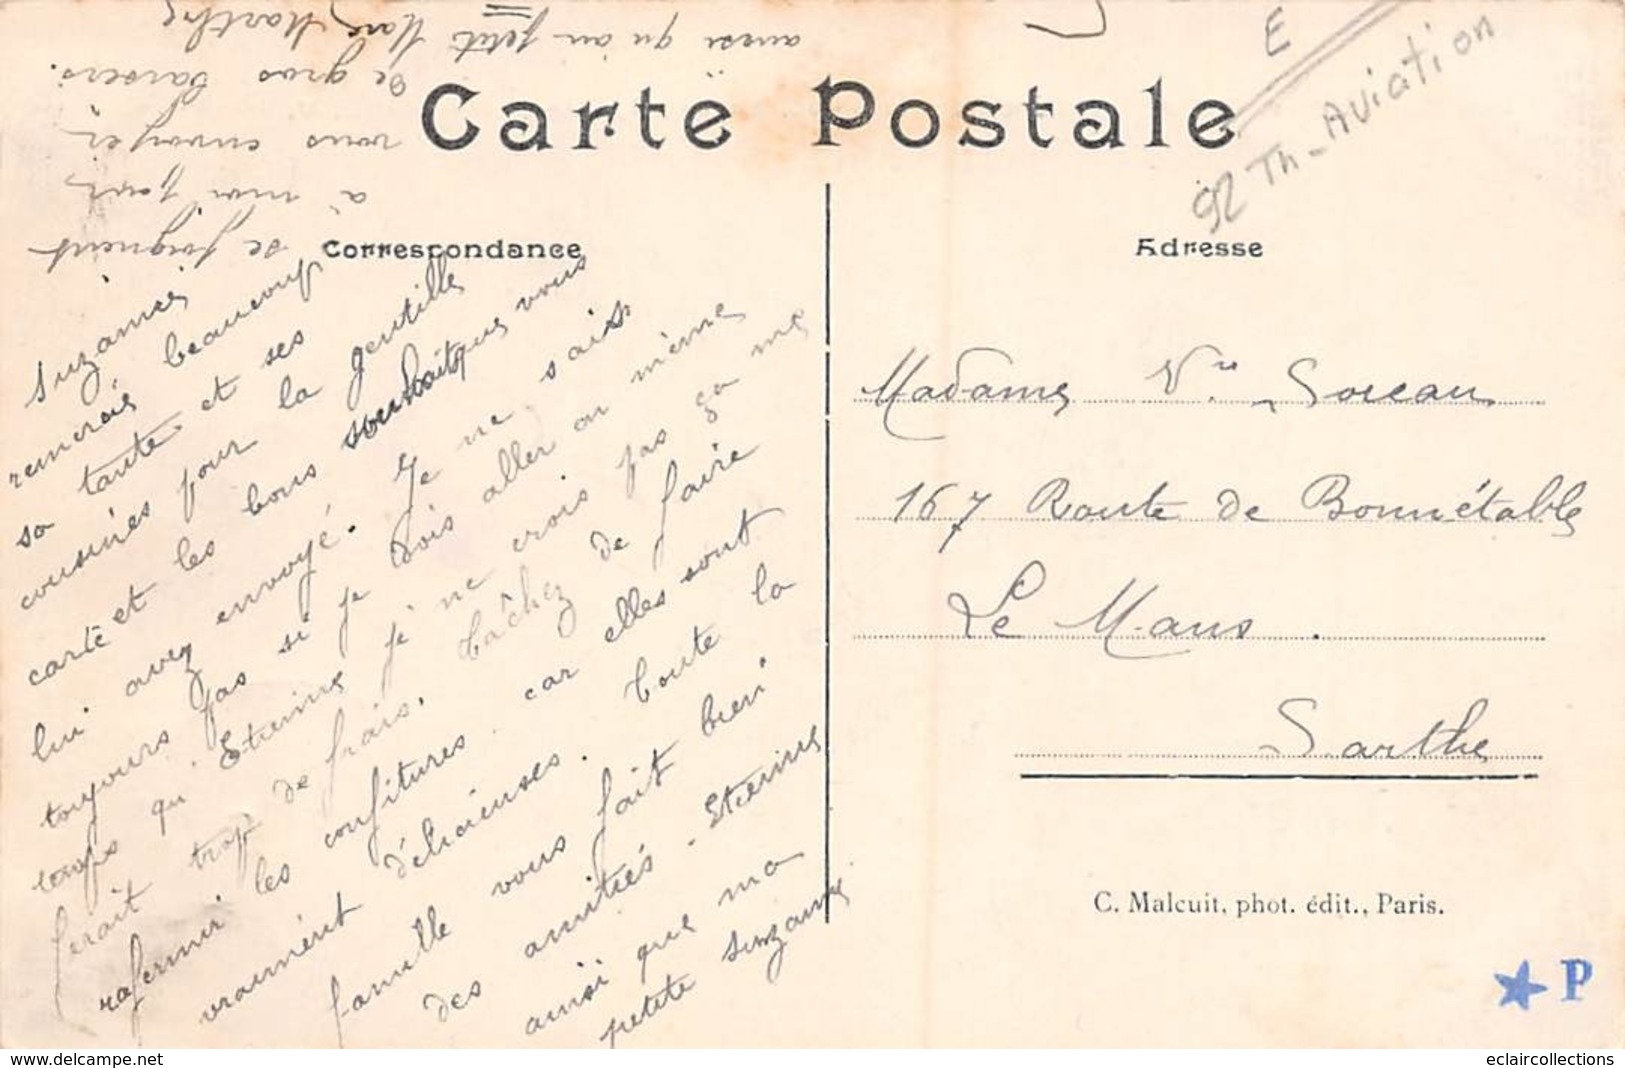 Carte Postale
Correspondance
Suzanne
remercie beaucoup
sa tante et ses
cousines pour la gentille
carte et les bons souhaits que vous
lui avez envoyé. Je ne sais
toujours pas si je dois aller en même
temps qu'Etienne je ne crois pas ça me
ferait trop de frais. tâchez de faire
rafermir les confitures car elles sont
vraiment délicieuses. toute la
famille vous fait bien
des amitiés. Etienne
ainsi que ma
petite Suzanne
se joignent
à moi pour
vous envoyer
de gros baisers.
ainsi qu'au petit Marc, Marthe
E
92 Th-Aviation
Adresse
Madame Vve Soreau
167 Route de Bonnétable
Le Mans.
Sarthe
C. Malcuit, phot. édit., Paris.
P
www.delcampe.net
eclaircollections